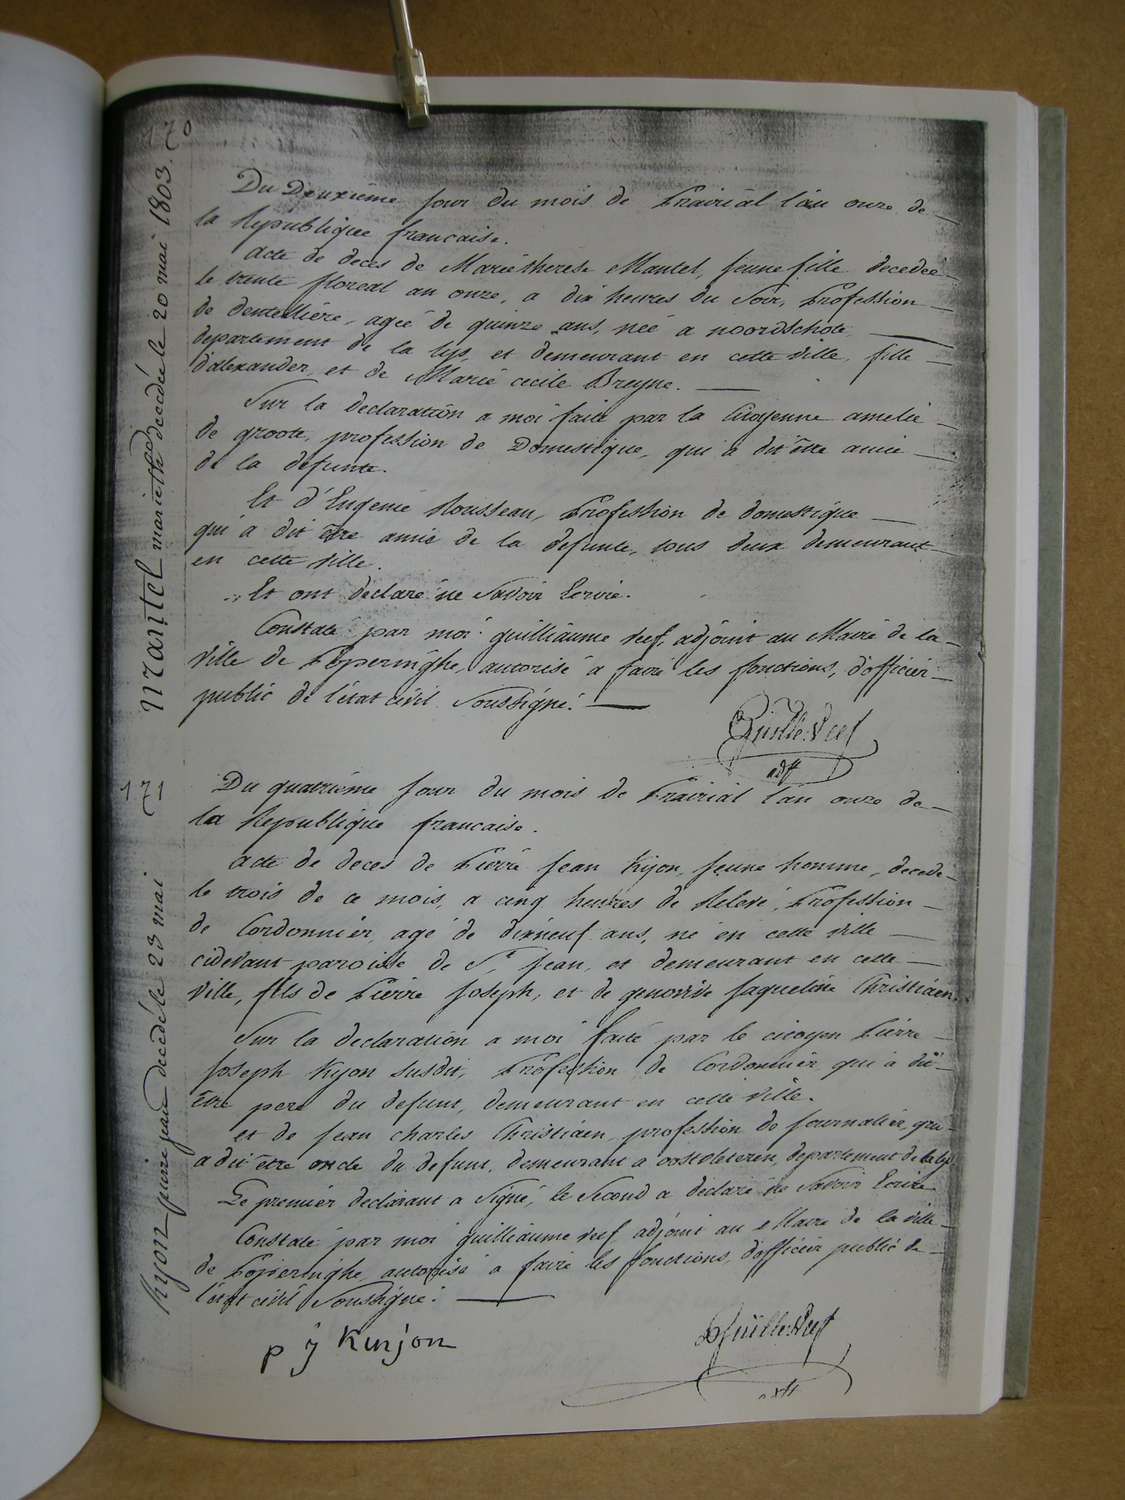 170
mantel marie thérèse décédée le 20 mai 1803.
Du Deuxième jour du mois de Prairial l'an onze de
la République française.
acte de deces de Marie therese Mantel, jeune fille decedeé
le trente floreal an onze, a dix heures du soir, Profession
de dentellière, ageé de quinze ans, neé a noordschote
departement de la lys, et demeurant en cette ville, fille
d'alexander, et de Marie cecile Breyne.
Sur la declaration a moi faite par la Citoyenne amelie
de groote, profession de Domestique, qui a dit être amie
de la defunte.
Et d'Eugenie Rousseau, Profession de domestique
qui a dit être amie de la defunte, tous deux demeurant
en cette ville.
Et ont declaré ne savoir Ecrire.
Constaté par moi guilliaume Neef, adjoint au Maire de la
ville de Poperinghe, autorisé a faire les fonctions, d'officier
public de l'état civil soussigné.
Guille. Neef
adjt
171
kyon pierre jean décédé le 23 mai
Du quatrième jour du mois de Prairial l'an onze de
la République française.
acte de deces de Pierre jean kyon, jeune homme, decedé
le trois de ce mois, a cinq heures de Relevé, Profession
de Cordonnier, agé de dixneuf ans, né en cette ville
cidevant paroisse de St. jean, et demeurant en cette
ville, fils de Pierre joseph, et de genovive jaqueline Christiaen.
Sur la declaration a moi faite par le citoyen Pierre
joseph kyon susdit, Profession de Cordonnier qui a dit
être pere du defunt, demeurant en cette ville.
et de jean charles Christiaen, profession de journalier, qui
a dit être oncle du defunt, demeurant a oostvleteren, departement de la lys
Le premier declarant a signé, le second a declaré ne savoir Ecrire
Constaté par moi guilliaume Neef adjoint au Maire de la ville
de Poperinghe, autorisé a faire les fonctions, d'officier public de
l'état civil soussigné.
p j Kinjon
Guille. Neef
adjt